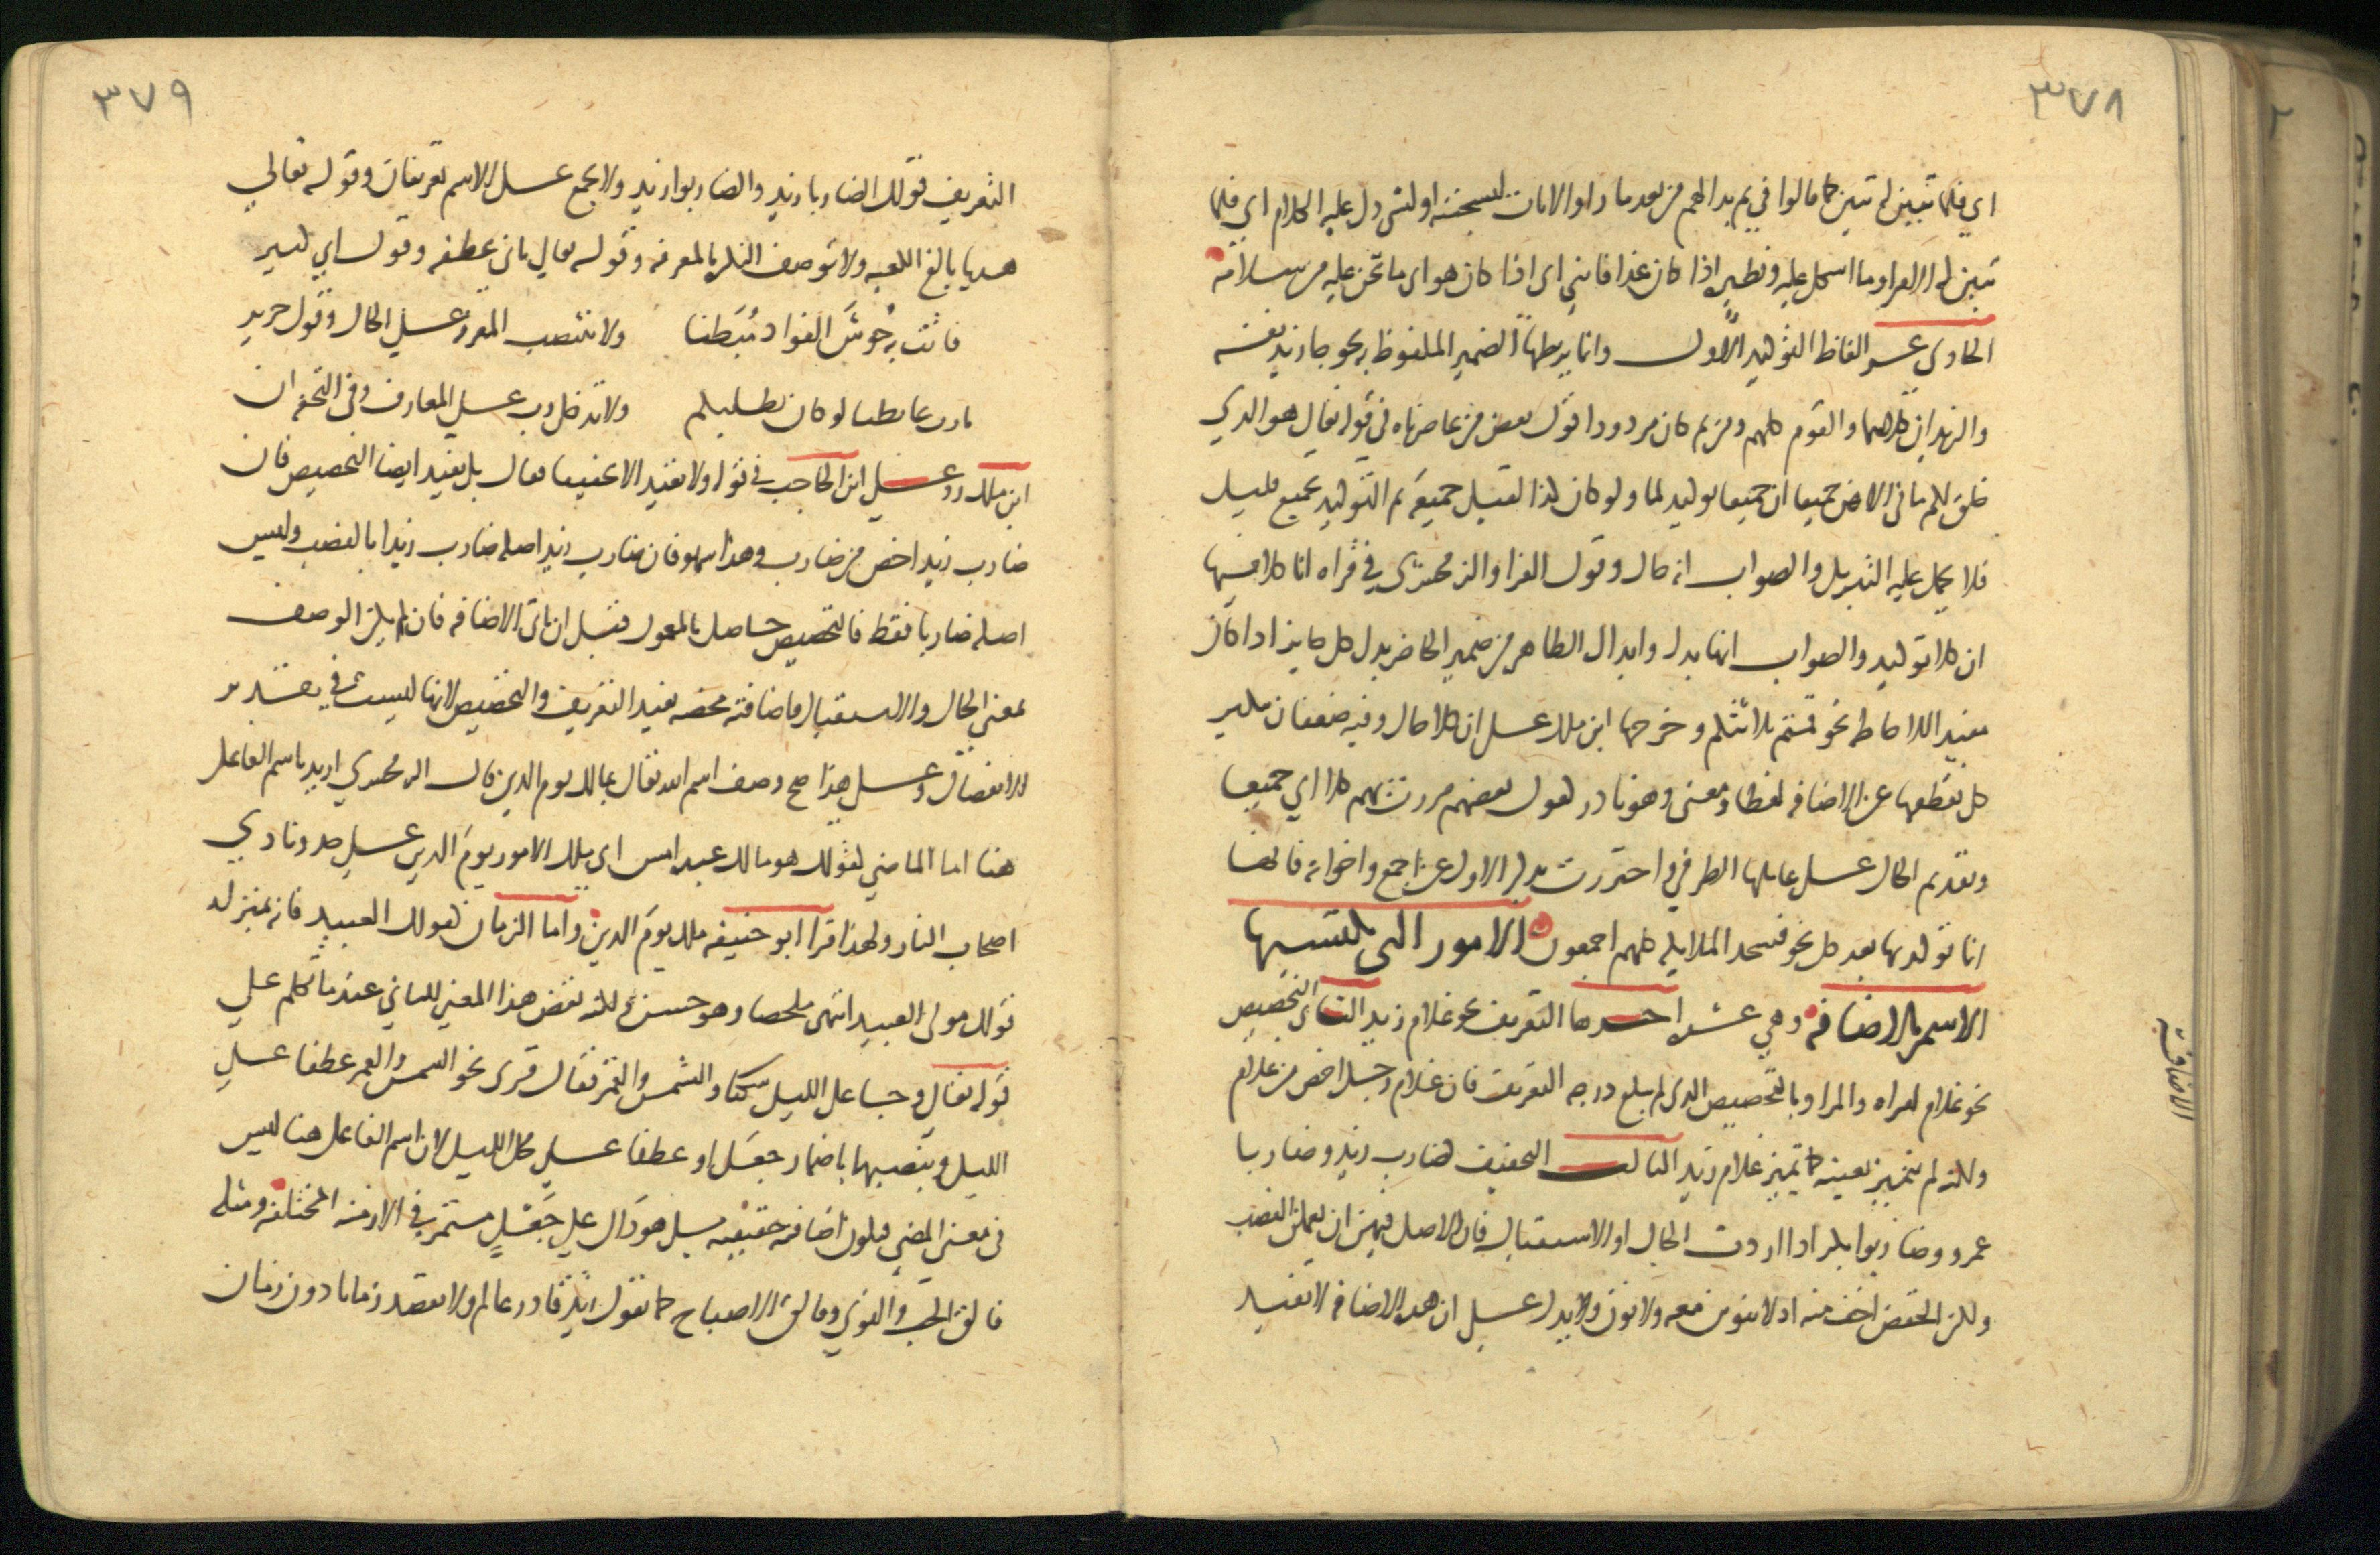 ٣٧٨
اي فلما تبين له تبين كما قالوا في ثم بدا لهم من بعد ما راوا الايات ليسجننه او لشي دل عليه الكلام اي فلما
تبين له الامر او ما اشكل عليه ونظيره اذا كان غدا فاتني اي اذا كان هو اي ما نحن عليه من سلامه
الحادي عشر الفاظ التوكيد الاول وانما يربطها الضمير الملفوظ به نحو جا زيد نفسه
والزيدان كلاهما والقوم كلهم ومن ثم كان مردودا قول بعض من عاصرناه في قوله تعالى هو الذي
خلق لكم ما في الارض جميعا ان جميعا توكيد لما ولو كان كذا لقيل جميعه ثم التوكيد بجميع قليل
فلا يحمل عليه التنزيل والصواب انه حال وقول الفرا والزمخشري في قراه انا كلا فيها
ان كلا توكيد والصواب انها بدل وابدال الظاهر من ضمير الحاضر بدل كل جايز اذا كان
مفيد الاحاطه نحو قمتم ثلاثتكم وخرجها ابن ملك على ان كلا حال وفيه ضعفان تنكير
كل بقطعها عن الاضافه لفظا ومعنى وهو نادر كقول بعضهم مررت بهم كلا اي جميعا
وتقديم الحال على عاملها الظرفي واحترزت بذكر الاول عن اجمع واخواته فانها
انما توكد بها بعد كل نحو فسجد الملايكه كلهم اجمعون الامور التي يكتسبها
الاسم بالاضافه وهي عشره احدها التعريف نحو غلام زيد الثاني التخصيص
نحو غلام امراه والمراد بالتخصيص الذي لم يبلغ درجه التعريف فان غلام رجل اخص من غلام
ولكنه لم يتميز بعينه كما يتميز غلام زيد الثالث التخفيف كضارب زيد وضاربا
عمرو وضاربوا بكر اذا اردت الحال او الاستقبال فان الاصل فيهن ان يعملن النصب
ولكن الخفض اخف منه اذ لا تنوين معه ولا نون ويدل على ان هذه الاضافه لا تفيد
الاضافة
٣٧٩
التعريف قولك الضاربا زيد والضاربوا زيد ولا يجمع على الاسم تعريفان وقوله تعالى
هديا بالغ الكعبه ولا توصف النكره بالمعرفه وقوله تعالى ثاني عطفه وقول ابي كبير
فاتت به حوش الفواد مبطنا ولا تنتصب المعرفه على الحال وقول جرير
يا رب غابطنا لو كان يطلبكم ولا تدخل رب على المعارف وفي التحفه ان
ابن ملك رد على ابن الحاجب في قوله ولا تفيد الا تخفيفا فقال بل تفيد ايضا التخصيص فان
ضارب زيد اخص من ضارب وهذا سهو فان ضارب زيد اصله ضارب زيدا بالنصب وليس
اصله ضاربا فقط فالتخصيص حاصل بالمعمول قبل ان تاتي الاضافه فان لم يكن الوصف
بمعنى الحال والاستقبال فاضافته محضه تفيد التعريف والتخصيص لانها ليست في تقدير
الانفصال وعلى هذا صح وصف اسم الله تعالى بمالك يوم الدين قال الزمخشري اريد باسم الفاعل
هنا اما الماضي كقولك هو مالك عبده امس اي ملك الامور يوم الدين على حد ونادي
اصحاب النار ولهذا قرا ابو حنيفه ملك يوم الدين واما الزمان كقولك العبيد فانه بمنزله
قولك مولى العبيد انتهى ملخصا وهو حسن ولكنه نقض هذا المعنى الثاني عندما تكلم على
قوله تعالى وجاعل الليل سكنا والشمس والقمر فقال قري نحو الشمس والقمر عطفا على
الليل وبنصبهما باضمار جعل او عطفا على محل الليل لان اسم الفاعل هنا ليس
في معنى المضي فيكون اضافته حقيقيه بل هو دال على جعل مستمر في الازمنه المختلفه ومثله
فالق الحب والنوى وفالق الاصباح كما تقول زيد قادر عالم ولا تقصد زمانا دون زمان